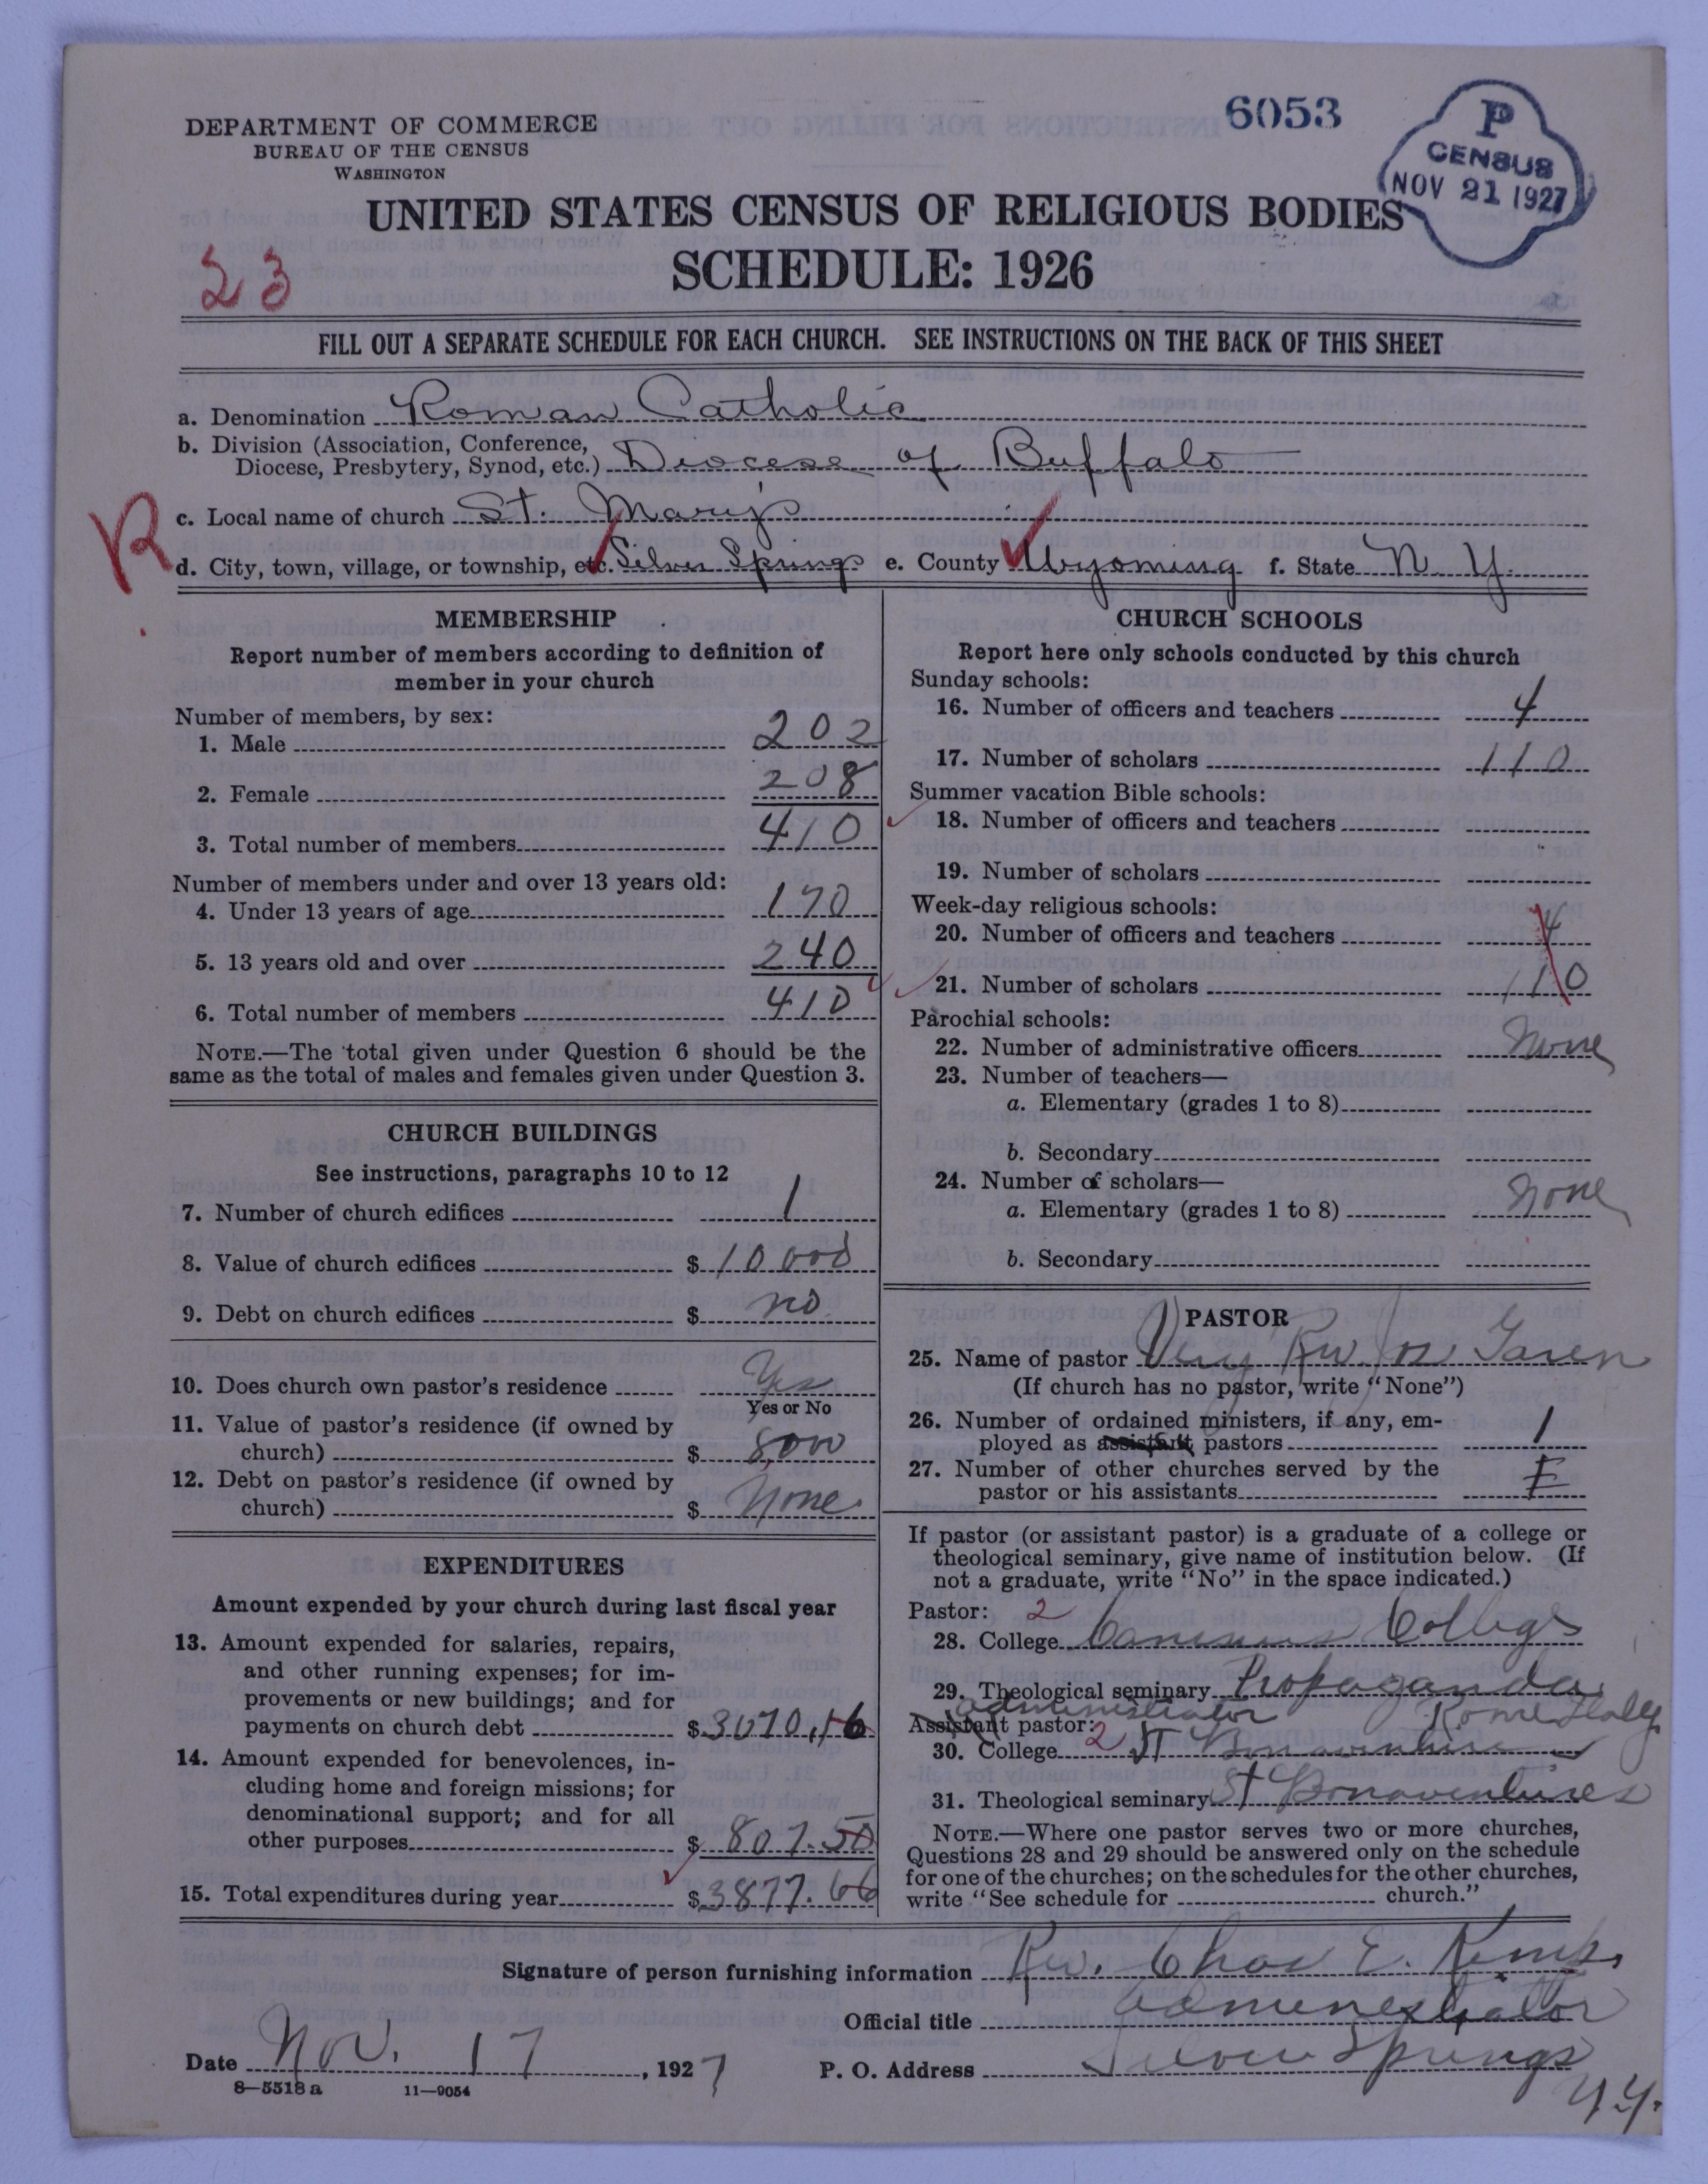 6053
P
CENSUS
NOV 21 1927
DEPARTMENT OF COMMERCE
BUREAU OF THE CENSUS
WASHINGTON
UNITED STATES CENSUS OF RELIGIOUS BODIES
SCHEDULE: 1926
23
FILL OUT A SEPARATE SCHEDULE FOR EACH CHURCH. SEE INSTRUCTIONS ON THE BACK OF THIS SHEET
a. Denomination Roman Catholic
b. Division (Association, Conference,
Diocese, Presbytery, Synod, etc.) Diocese of Buffalo
c. Local name of church St. Mary's
R
d. City, town, village, or township, etc. Silver Springs e. County Wyoming f. State N. Y.
MEMBERSHIP
Report number of members according to definition of
member in your church
Number of members, by sex:
1. Male 202
2. Female 208
3. Total number of members 410
Number of members under and over 13 years old:
4. Under 13 years of age 170
5. 13 years old and over 240
6. Total number of members 410
NOTE.—The total given under Question 6 should be the
same as the total of males and females given under Question 3.
CHURCH BUILDINGS
See instructions, paragraphs 10 to 12
7. Number of church edifices 1
8. Value of church edifices $ 10000
9. Debt on church edifices $ no
10. Does church own pastor's residence Yes
Yes or No
11. Value of pastor's residence (if owned by
church) $ 8,000
12. Debt on pastor's residence (if owned by
church) $ None
EXPENDITURES
Amount expended by your church during last fiscal year
13. Amount expended for salaries, repairs,
and other running expenses; for im-
provements or new buildings; and for
payments on church debt $ 3070.16
14. Amount expended for benevolences, in-
cluding home and foreign missions; for
denominational support; and for all
other purposes $ 807.50
15. Total expenditures during year $ 3877.66
CHURCH SCHOOLS
Report here only schools conducted by this church
Sunday schools:
16. Number of officers and teachers 4
17. Number of scholars 110
Summer vacation Bible schools:
18. Number of officers and teachers
19. Number of scholars
Week-day religious schools:
20. Number of officers and teachers 4
21. Number of scholars 110
Parochial schools:
22. Number of administrative officers None
23. Number of teachers—
a. Elementary (grades 1 to 8)
b. Secondary
24. Number of scholars—
a. Elementary (grades 1 to 8) None
b. Secondary
PASTOR
25. Name of pastor Very Rev. Garen
(If church has no pastor, write "None")
26. Number of ordained ministers, if any, em-
ployed as assistant pastors 1
27. Number of other churches served by the
pastor or his assistants
If pastor (or assistant pastor) is a graduate of a college or
theological seminary, give name of institution below. (If
not a graduate, write "No" in the space indicated.)
Pastor: 2
28. College Canisius College
29. Theological seminary Propaganda
administrator Rome Italy
Assistant pastor: 2
30. College St Bonaventure
31. Theological seminary St Bonaventures
NOTE.—Where one pastor serves two or more churches,
Questions 28 and 29 should be answered only on the schedule
for one of the churches; on the schedules for the other churches,
write "See schedule for church."
Signature of person furnishing information Rev. Chas E.
Official title Administrator
Date Nov. 17, 1927 P. O. Address Silver Springs
N.Y.
8—5518 a 11—9054